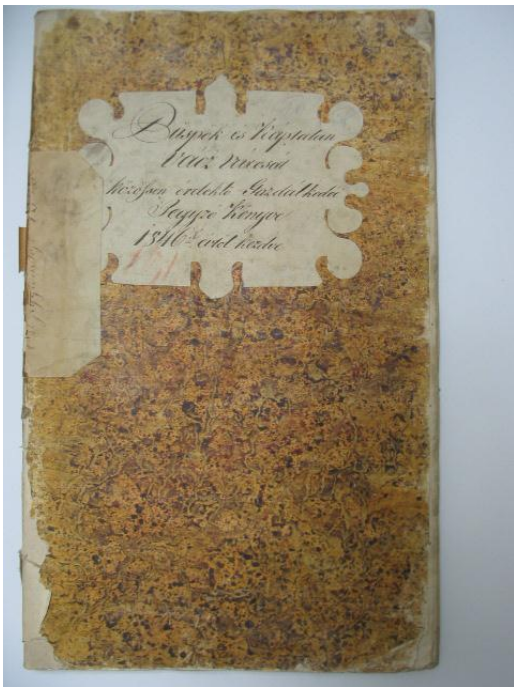 Püspök és Káptalan
Vácz városát
közössen érdeklő Gazdálkodási
Jegyző Könyve
1846 évtől kezdve